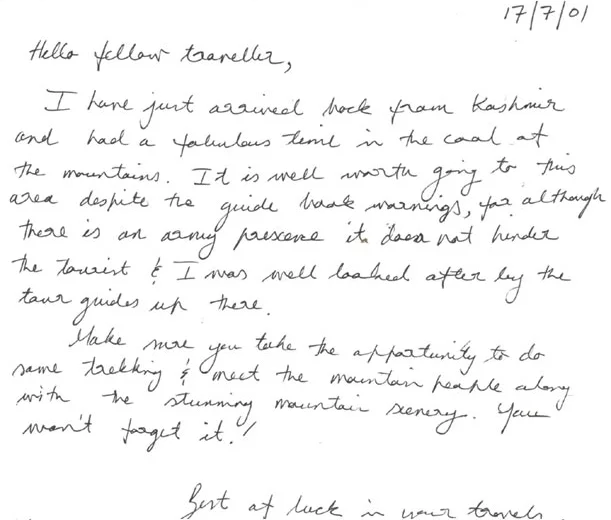 17/7/01
Hello fellow traveller,
I have just arrived back from Kashmir
and had a fabulous time in the cool of
the mountains. It is well worth going to this
area despite the guide book warnings, for although
there is an army presence it does not hinder
the tourist & I was well looked after by the
tour guides up there.
Make sure you take the opportunity to do
some trekking & meet the mountain people along
with the stunning mountain scenery. You
won't forget it!
Best of luck in your travels